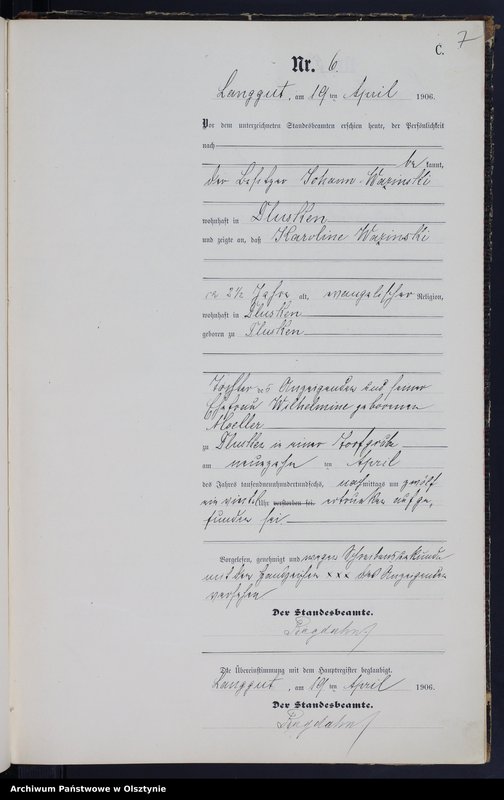 C.
7
Nr. 6.
Langgut, am 19 ten April 1906.
Vor dem unterzeichneten Standesbeamten erschien heute, der Persönlichkeit
nach
be kannt,
der Besitzer Johann Wazinski
wohnhaft in Plusken
und zeigte an, daß Karoline Wazinski
ca 2½ Jahre alt, evangelischer Religion,
wohnhaft in Plusken
geboren zu Plusken
Tochter des Anzeigenden und seiner
Ehefrau Wilhelmine geborenen
Moeller
zu Plusken in einer Torfgrube
am neunzehn ten April
des Jahres tausendneunhundertundsechs, nachmittags um zwölf
ein viertel Uhr verstorben sei. ertrunken aufge,
funden sei.
Vorgelesen, genehmigt und wegen Schreibensunkunde
mit den Handzeichen xxx des Anzeigenden
versehen
Der Standesbeamte.
Die Übereinstimmung mit dem Hauptregister beglaubigt.
Langgut, am 19 ten April 1906.
Der Standesbeamte.
Archiwum Państwowe w Olsztynie